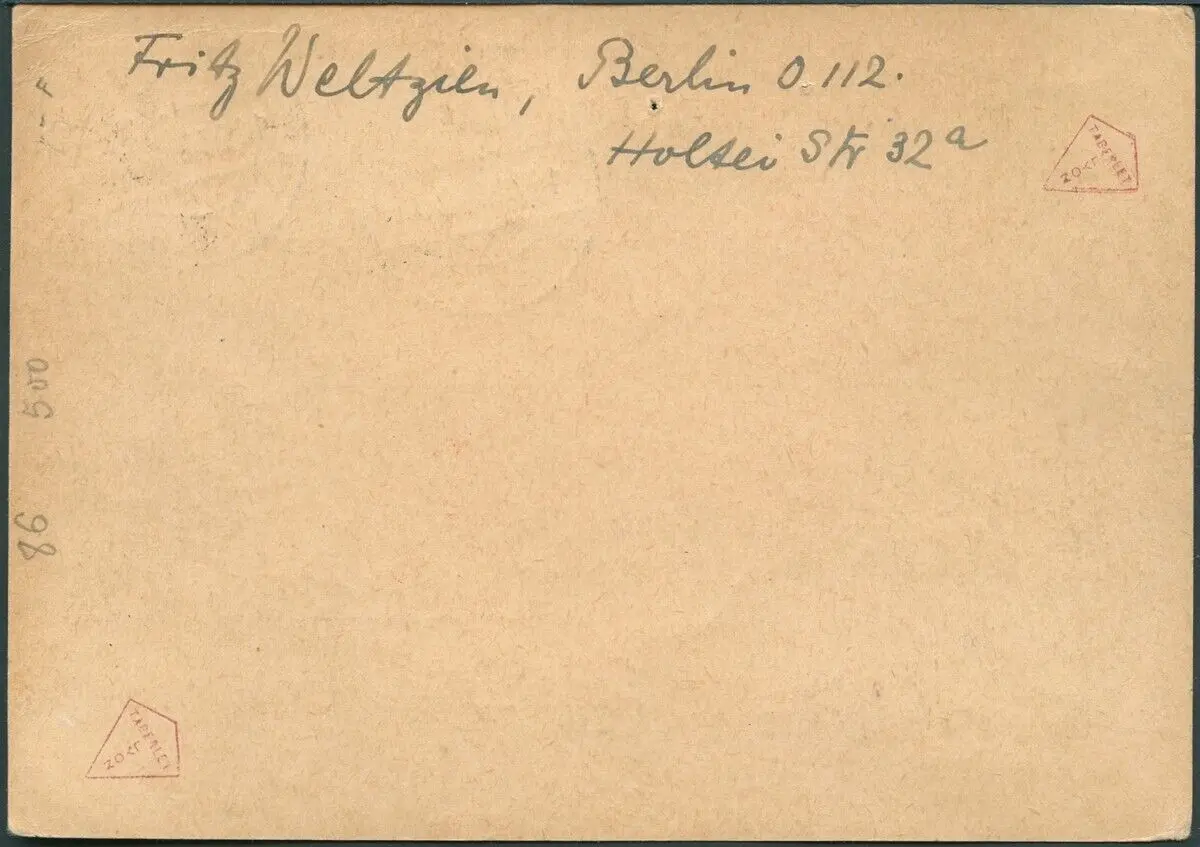 Fritz Weltzien, Berlin O.112.
Holtei Str 32a
TABERLET
500
86
TABERLET